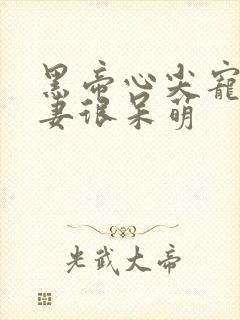 黑帝心尖寵
妻很呆萌
光武大帝